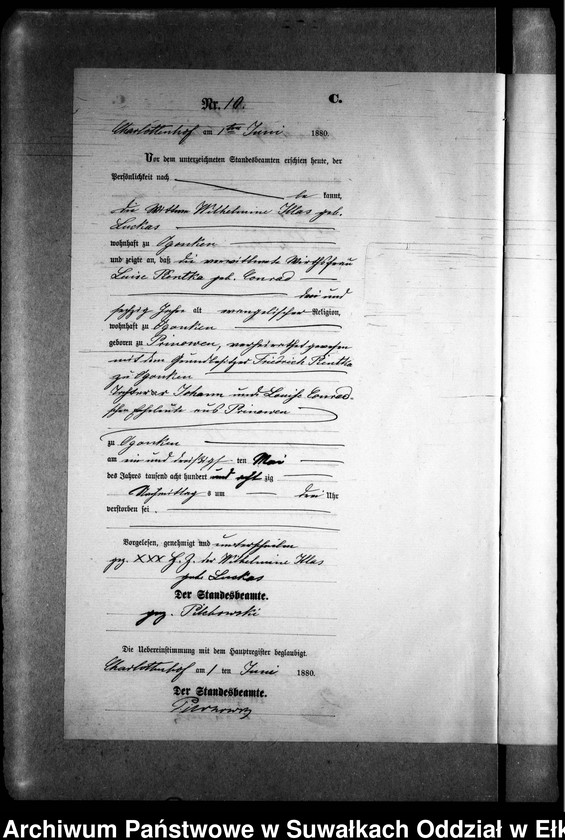 Nr. 10.
C.
Charlottenhof am 1ten Juni 1880.
Vor dem unterzeichneten Standesbeamten erschien heute, der
Persönlichkeit nach
be kannt,
die Wittwe Wilhelmine Klas geb.
Luckas
wohnhaft zu Ogonken
und zeigte an, daß die verwittwete Wirthsfrau
Luise Rentka geb. Conrad
drei und
sechzig Jahre alt evangelischer Religion,
wohnhaft zu Ogonken
geboren zu Prinowen, verheirathet gewesen
mit dem Grundbesitzer Friedrich Rentka
zu Ogonken
Tochter der Johann und Louise Conrad-
schen Eheleute aus Prinowen
zu Ogonken
am ein und dreißigsten Mai
des Jahres tausend acht hundert und acht zig
Nachmittag s um drei Uhr
verstorben sei.
Vorgelesen, genehmigt und unterschrieben
gez. XXX H. Z. der Wilhelmine Klas
geb. Luckas
Der Standesbeamte.
gez.
Die Uebereinstimmung mit dem Hauptregister beglaubigt.
Charlottenhof am 1 ten Juni 1880.
Der Standesbeamte.
Archiwum Państwowe w Suwałkach Oddział w Ełk